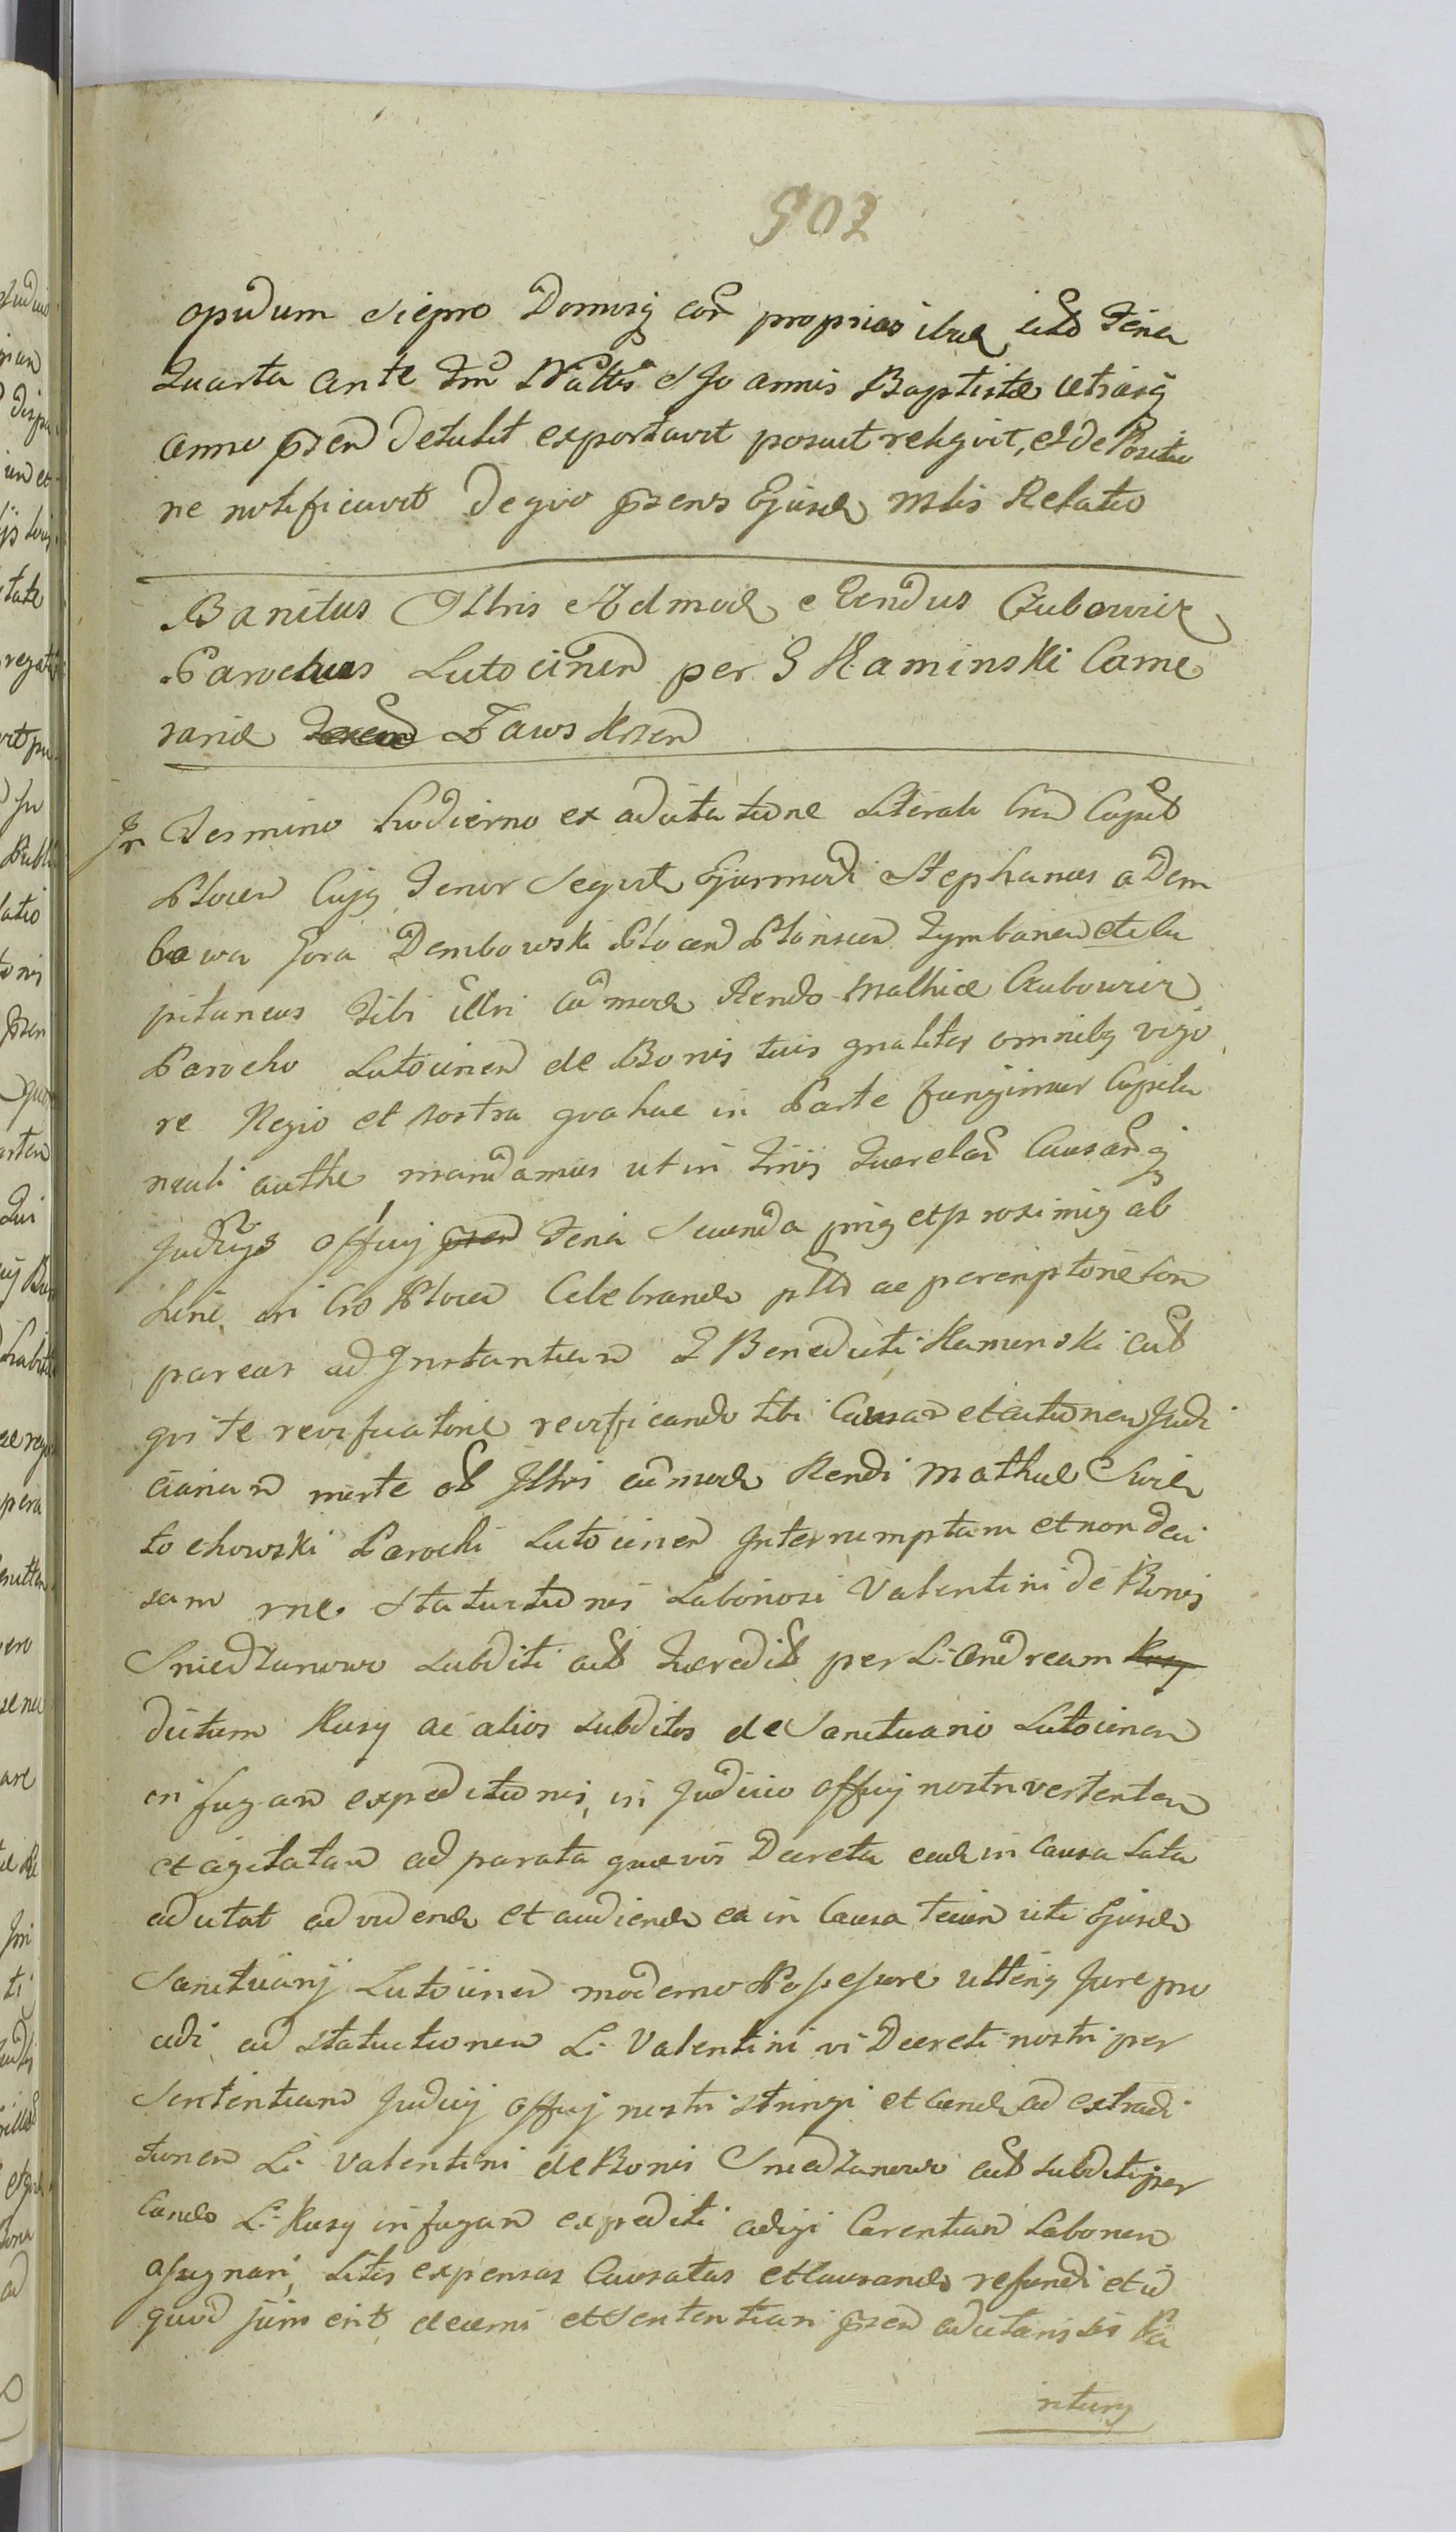 902
opidum Siepro Domusq cor proprias ibid itd Feria
Quarta ante Fm Natts S Joannis Baptistæ
anno prsen detulit exportavit posuit reliqvit, et de Positio
ne notificavit deqvo prsens Ejusd Mlis Relatio
Banitus Illris Admod Rendus Czubowicz
Parochus Lutocinen per G Kaminski Came
rarid Zawskrzen
In Termino hodierno ex adcitatione Literali Cren Capitl
Plocen Cujq tenor Seqvit Ejusmodi Stephanus a Dem
bowa Gora Dembowski Plocen Plonscen Capi
pitaneus Tibi Illri admod Rendo Mathiæ Czubowicz
Parocho Lutocinen de Bonis tuis gnaliter omnibq vigo
re Regio et nostra qva hac in Parte fungimur Capita
neali authe mandamus ut in Tmis Querelar Causarq
Judicys Officij Feria Secunda et proximis ab
hinc in Cro Plocen Celebrand ac peremptorie Com
pareas ad Instantian G Benedicti Kaminski
qvi te revificatorie revificando tibi Causan et actionen Judi
ciarian morte ol Illris admod Rendi Mathiæ Swie
tochowski Parochi Lutocinen Interrumptam et non deci
sam rne Statuitionis Laboriosi Valentini de Bonis
Sniedzanowo Subditi per L. Andream
dictum Kusy ac alios Subditos de Sanctuario Lutocinen
in fugan expeditionis, in Judicio Officij nostri vertenten
et agitatan ad parata quævis Decreta ead in Causa Lata
adcitat ad vidend et audiend ea in Causa tecum uti Ejusd
Sanctuarij Lutocinen moderno Possessore ulteriq Jure pro
cedi ad Statuitionen L. Valentini vi Decreti nostri per
Sententiam Judicij Officij nostri Stringi et ad extradi
tionen L. Valentini de Bonis Sniedzanowo Subditi per
L. Kusy in fugan expediti adigi Carentian Laborum
assignari, Litis expensas Causatas et Causando refundi et id
quod juris erit decerni et Sententian prsen
riturq